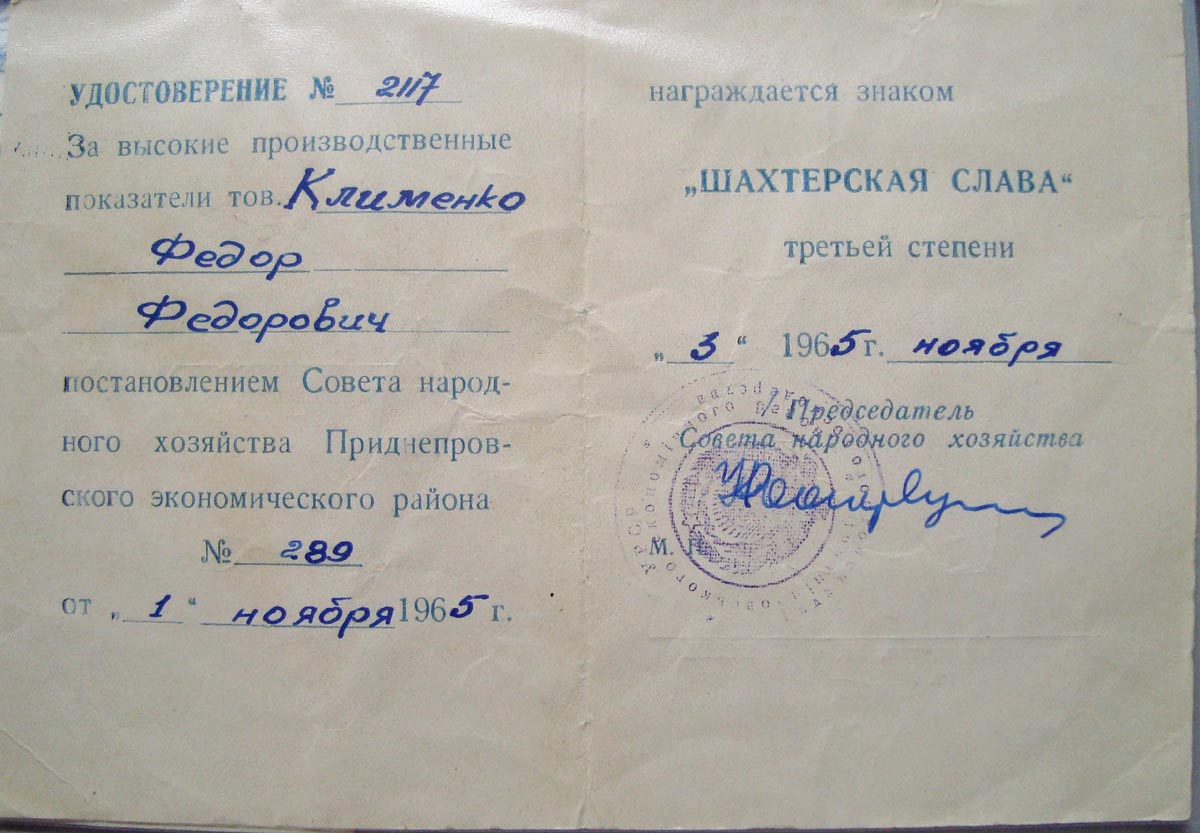 УДОСТОВЕРЕНИЕ № 2117
За высокие производственные
показатели тов. Клименко
Федор
Федорович
постановлением Совета народ-
ного хозяйства Приднепров-
ского экономического района
№ 289
от „1“ ноября 1965 г.
награждается знаком
„ШАХТЕРСКАЯ СЛАВА“
третьей степени
„3“ 1965 г. ноября
Председатель
Совета народного хозяйства
М. П.